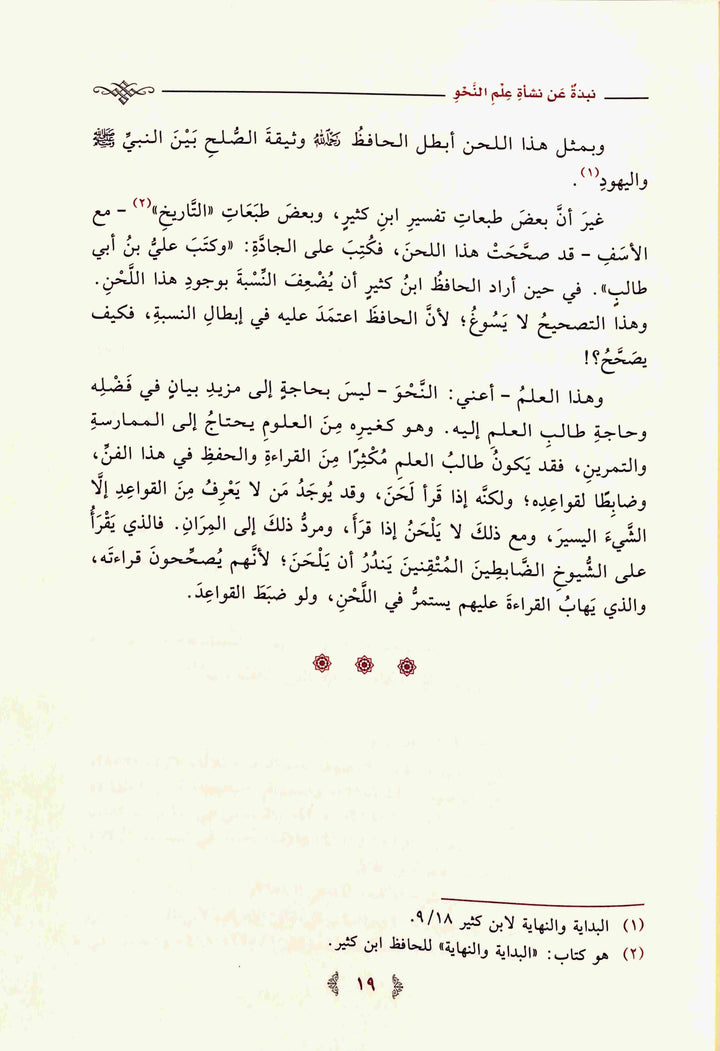 نبذةٌ عَن نشأةِ عِلْمِ النَّحْوِ
وبمثل هذا اللحن أبطل الحافظُ رَحِمَهُ اللهُ وثيقةَ الصُّلحِ بَيْنَ النبيِّ ﷺ
واليهودِ(١).
غيرَ أنَّ بعضَ طبعاتِ تفسيرِ ابنِ كثيرٍ، وبعضَ طبَعَاتِ «التَّاريخِ»(٢) - مع
الأسَفِ - قد صحَّحَتْ هذا اللحنَ، فكُتِبَ على الجادَّةِ: «وكتَبَ عليُّ بنُ أبي
طالبٍ». في حين أراد الحافظُ ابنُ كثيرٍ أن يُضْعِفَ النِّسْبةَ بوجودِ هذا اللَّحْنِ.
وهذا التصحيحُ لا يَسُوغُ؛ لأنَّ الحافظَ اعتمَدَ عليه في إبطالِ النسبةِ، فكيف
يصَحَّحُ؟!
وهذا العلمُ - أعني: النَّحْوَ - ليسَ بحاجةٍ إلى مزيدِ بيانٍ في فَضْلِه
وحاجةِ طالبِ العلمِ إليه. وهو كغيرِه مِنَ العلومِ يحتاجُ إلى الممارسةِ
والتمرينِ، فقد يَكونُ طالبُ العلمِ مُكْثِرًا مِنَ القراءةِ والحفظِ في هذا الفنِّ،
وضابِطًا لقواعدِه؛ ولكنَّه إذا قرأ لَحَنَ، وقد يُوجَدُ مَن لا يَعْرِفُ مِنَ القواعدِ إلَّا
الشَّيءَ اليسيرَ، ومع ذلكَ لا يَلْحَنُ إذا قرَأَ، ومردُّ ذلكَ إلى المِرَانِ. فالذي يَقْرَأُ
على الشُّيوخِ الضَّابطِينَ المُتْقِنينَ يَندُرُ أن يَلْحَنَ؛ لأنَّهم يُصحِّحونَ قراءتَه،
والذي يَهابُ القراءةَ عليهم يستمرُّ في اللَّحْنِ، ولو ضبَطَ القواعِدَ.
(١) البداية والنهاية لابن كثير ٩/١٨.
(٢) هو كتاب: «البداية والنهاية» للحافظ ابن كثير.
١٩